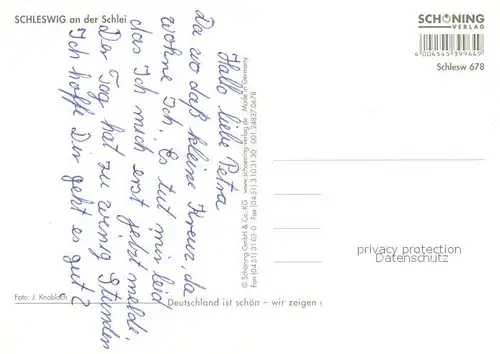 SCHLESWIG an der Schlei
SCHÖNING
VERLAG
4 004545 399649
Schlesw 678
Hallo liebe Petra
Da wo daß kleine Kreuz, da
wohne Ich. Es tut mir leid
das Ich mich erst jetzt melde.
Der Tag hat zu wenig Stunden
Ich hoffe Dir geht es gut?
© Schöning GmbH & Co. KG · www.schoening-verlag.de · Made in Germany
Fax (04 51) 3 10 31 30 · 001 24837 0678
privacy protection
Datenschutz
Foto: J. Knobloch
Deutschland ist schön – wir zeigen